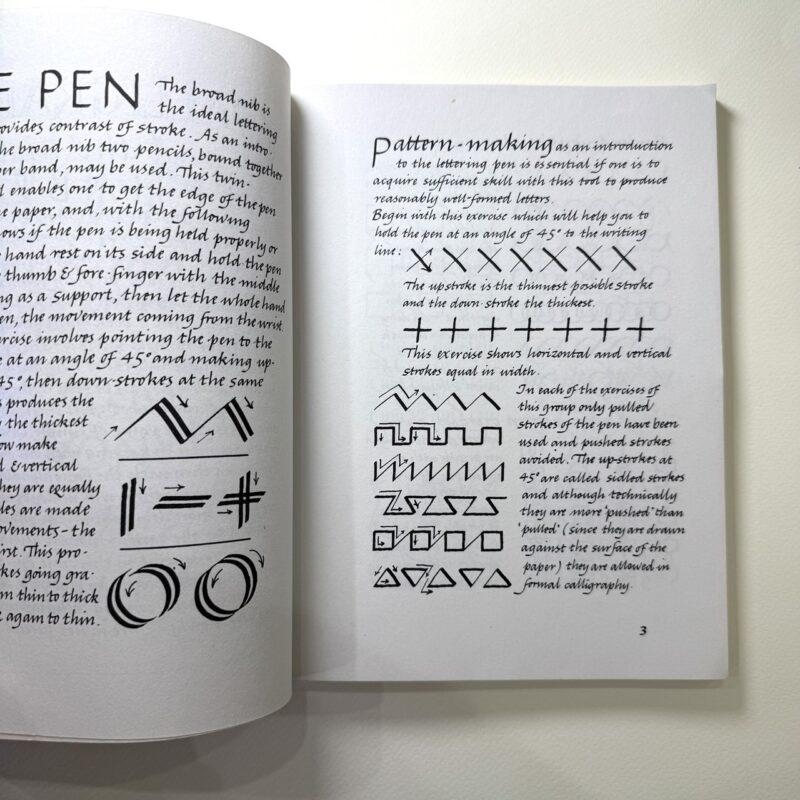 E PEN The broad nib is
the ideal lettering
ovides contrast of stroke. As an intro-
he broad nib two pencils, bound together
er band, may be used. This twin-
d enables one to get the edge of the pen
e paper, and, with the following
ows if the pen is being held properly or
hand rest on its side and hold the pen
thumb & fore-finger with the middle
ng as a support, then let the whole hand
en, the movement coming from the wrist.
rcise involves pointing the pen to the
e at an angle of 45° and making up-
45°, then down-strokes at the same
s produces the
the thickest
ow make
l & vertical
hey are equally
les are made
ovements - the
irst. This pro-
kes going gra-
m thin to thick
again to thin.
Pattern-making as an introduction
to the lettering pen is essential if one is to
acquire sufficient skill with this tool to produce
reasonably well-formed letters.
Begin with this exercise which will help you to
hold the pen at an angle of 45° to the writing
line:
The upstroke is the thinnest possible stroke
and the down-stroke the thickest.
This exercise shows horizontal and vertical
strokes equal in width.
In each of the exercises of
this group only pulled
strokes of the pen have been
used and pushed strokes
avoided. The up-strokes at
45° are called sidled strokes
and although technically
they are more 'pushed' than
'pulled' (since they are drawn
against the surface of the
paper) they are allowed in
formal calligraphy.
3